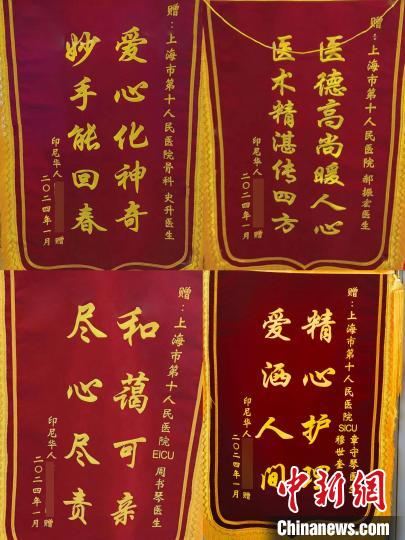 赠：上海市第十人民医院骨科 史升医生
爱心化神奇
妙手能回春
印尼华人 赠
二〇二四年一月
赠：上海市第十人民医院 郝振宏医生
医德高尚暖人心
医术精湛传四方
印尼华人 赠
二〇二四年一月
赠：上海市第十人民医院 EICU 周书琴医生
和蔼可亲
尽心尽责
印尼华人 赠
二〇二四年一月
赠：上海市第十人民医院 SICU 章守琴
穆世奎
精心护
爱洒人间
印尼华人
二〇二四年一月
中新网
Chinanews.com